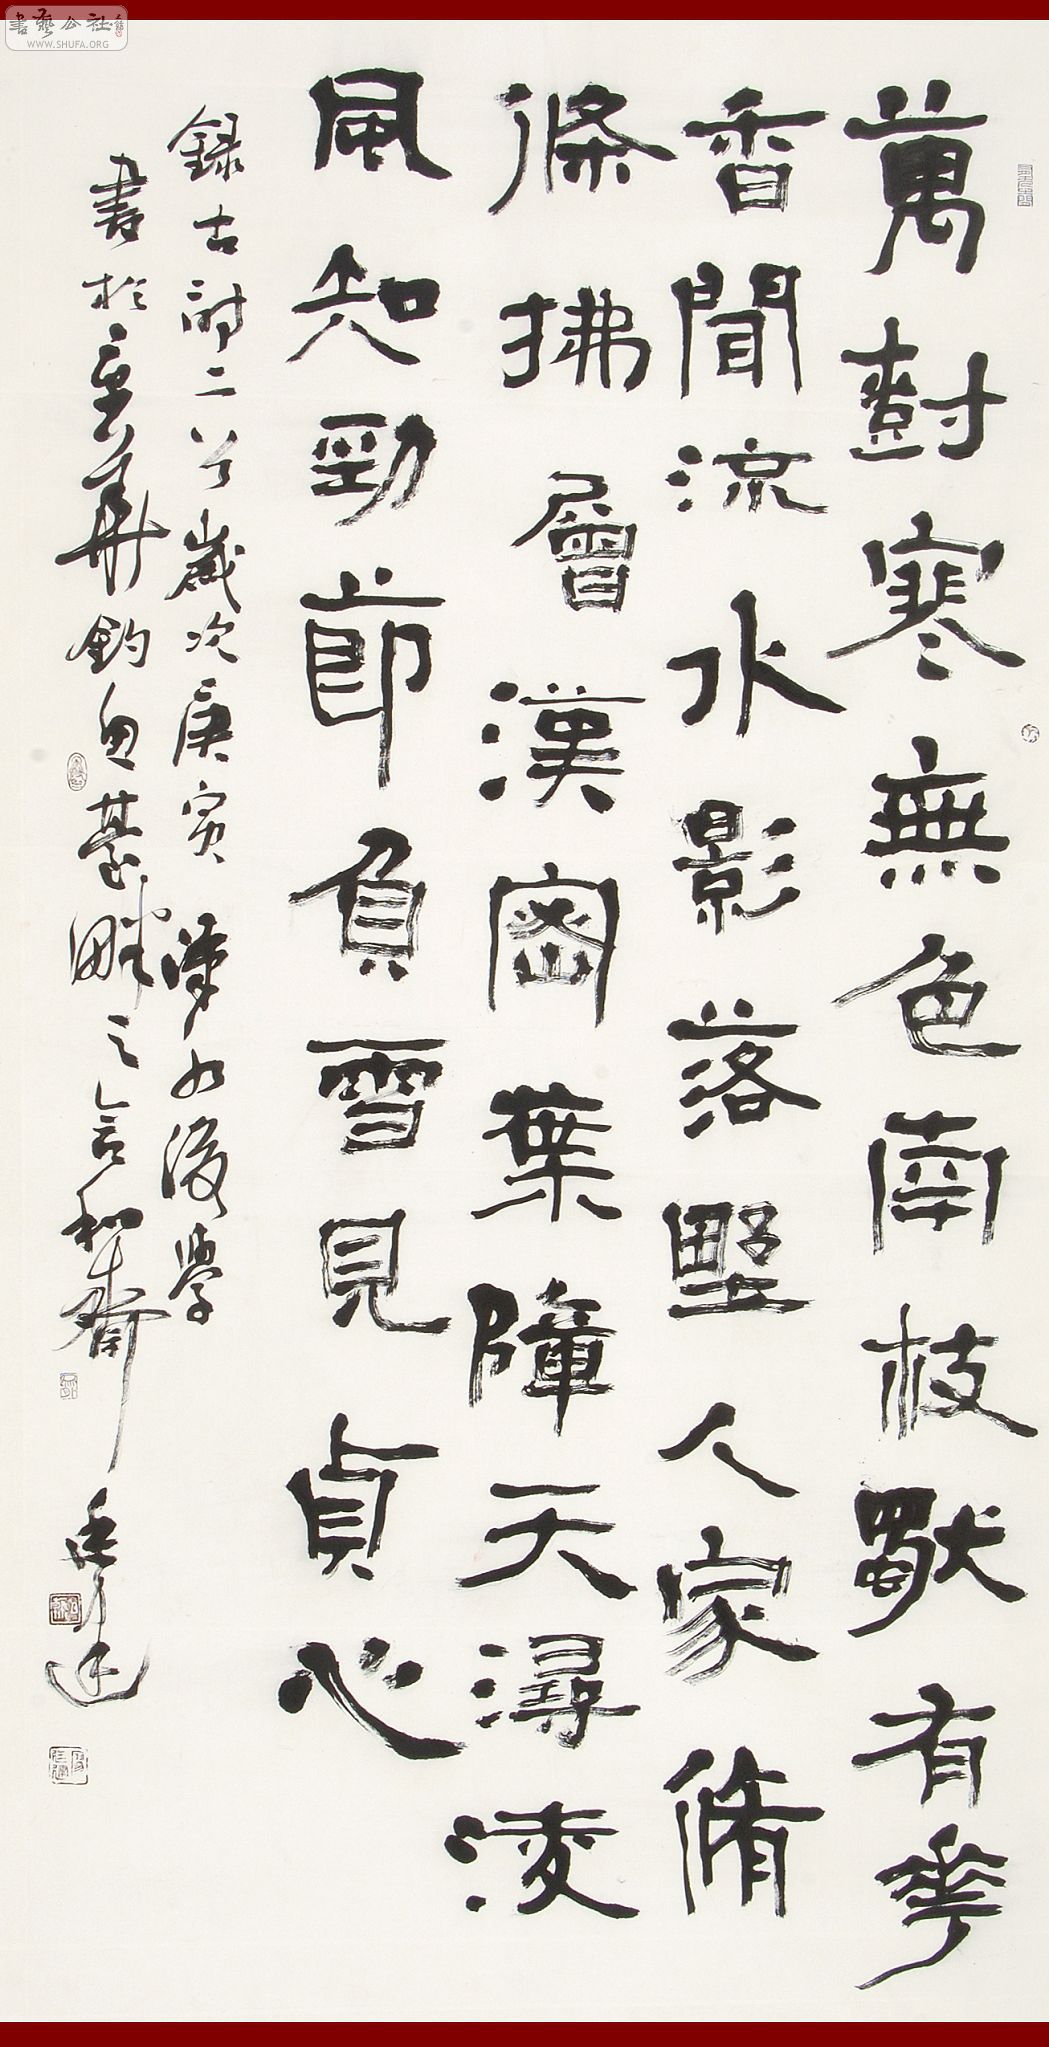 書藝公社
WWW.SHUFA.ORG
萬樹寒無色南枝獨有華
香聞流水影落墅人家脩
條拂層漢密葉障天潯凌
風知勁節負雪見貞心
錄古詩二首歲次庚寅漢水後學
書於華釣魚臺畔之言和齋